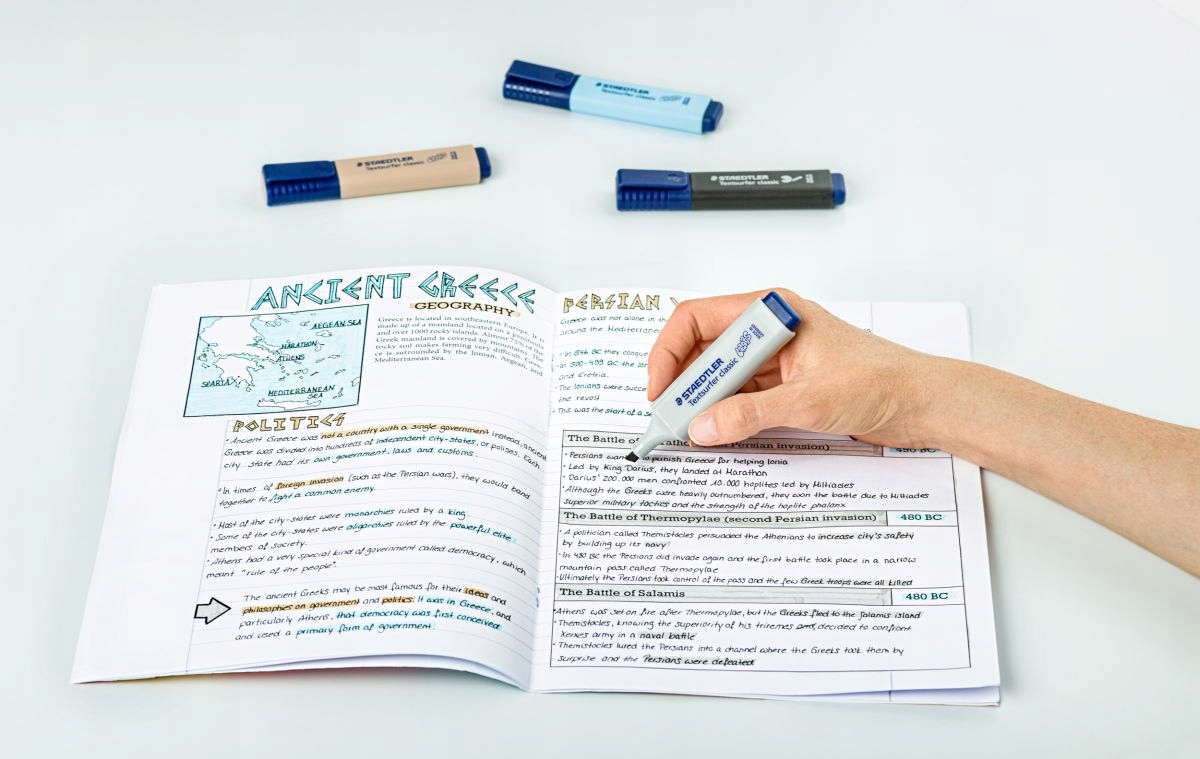 STAEDTLER
Textsurfer classic
STAEDTLER
Textsurfer classic
STAEDTLER
Textsurfer classic
STAEDTLER
Textsurfer classic
ANCIENT GREECE
GEOGRAPHY
Greece is located in southeastern Europe. It is
made up of a mainland located on a peninsula
and over 1000 rocky islands. Almost 75% of the
Greek mainland is covered by mountains. The
rocky soil makes farming very difficult. Gree-
ce is surrounded by the Ionian, Aegean, and
Mediterranean Sea.
AEGEAN SEA
MARATHON
ATHENS
SPARTA
MEDITERRANEAN
SEA
POLITICS
• Ancient Greece was not a country with a single government instead, ancient
Greece was divided into hundreds of independent city-states, or polises. Each
city-state had its own government, laws and customs.
• In times of foreign invasion (such as the Persian wars), they would band
together to fight a common enemy.
• Most of the city-states were monarchies ruled by a king.
• Some of the city-states were oligarchies ruled by the powerful elite
members of society.
• Athens had a very special kind of government called democracy, which
meant "rule of the people".
The ancient Greeks may be most famous for their ideas and
philosophies on government and politics. It was in Greece, and
particularly Athens, that democracy was first conceived
and used a primary form of government.
PERSIAN
Greece was not alone in th
around the Mediterrane
• In 546 BC they conque
• In 500-499 BC the Ion
and Eretria.
• The Ionians were succe
the revolt
• This was the start of a se
The Battle of Marathon (first Persian invasion) 490 BC
• Persians wan to punish Greece for helping Ionia
• Led by King Darius, they landed at Marathon
• Darius' 200.000 men confronted 10.000 hoplites led by Miltiades
• Although the Greeks were heavily outnumbered, they won the battle due to Miltiades
superior military tactics and the strength of the hoplite phalanx
The Battle of Thermopylae (second Persian invasion) 480 BC
• A politician called Themistocles persuaded the Athenians to increase city's safety
by building up its navy
• In 480 BC the Persians did invade again and the first battle took place in a narrow
mountain pass called Thermopylae
• Ultimately the Persians took control of the pass and the few Greek troops were all killed
The Battle of Salamis 480 BC
• Athens was set on fire after Thermopylae, but the Greeks fled to the Salamis island
• Themistocles, knowing the superiority of his triremes and, decided to confront
Xerxes army in a naval battle
• Themistocles lured the Persians into a channel where the Greeks took them by
surprise and the Persians were defeated